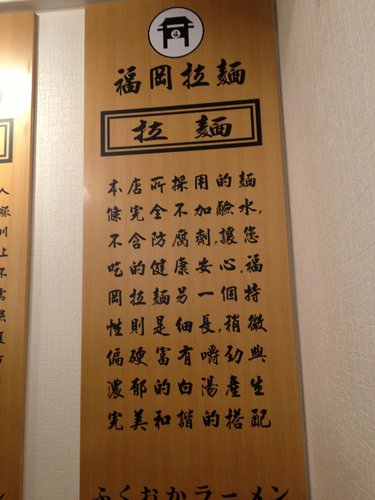 福岡拉麵
拉麵
本店所採用的麵
條完全不加鹼水,
不含防腐劑,讓您
吃的健康安心.福
岡拉麵另一個特
性則是細長,稍微
偏硬富有嚼勁與
濃郁的白湯產生
完美和諧的搭配
ふくおかラーメン